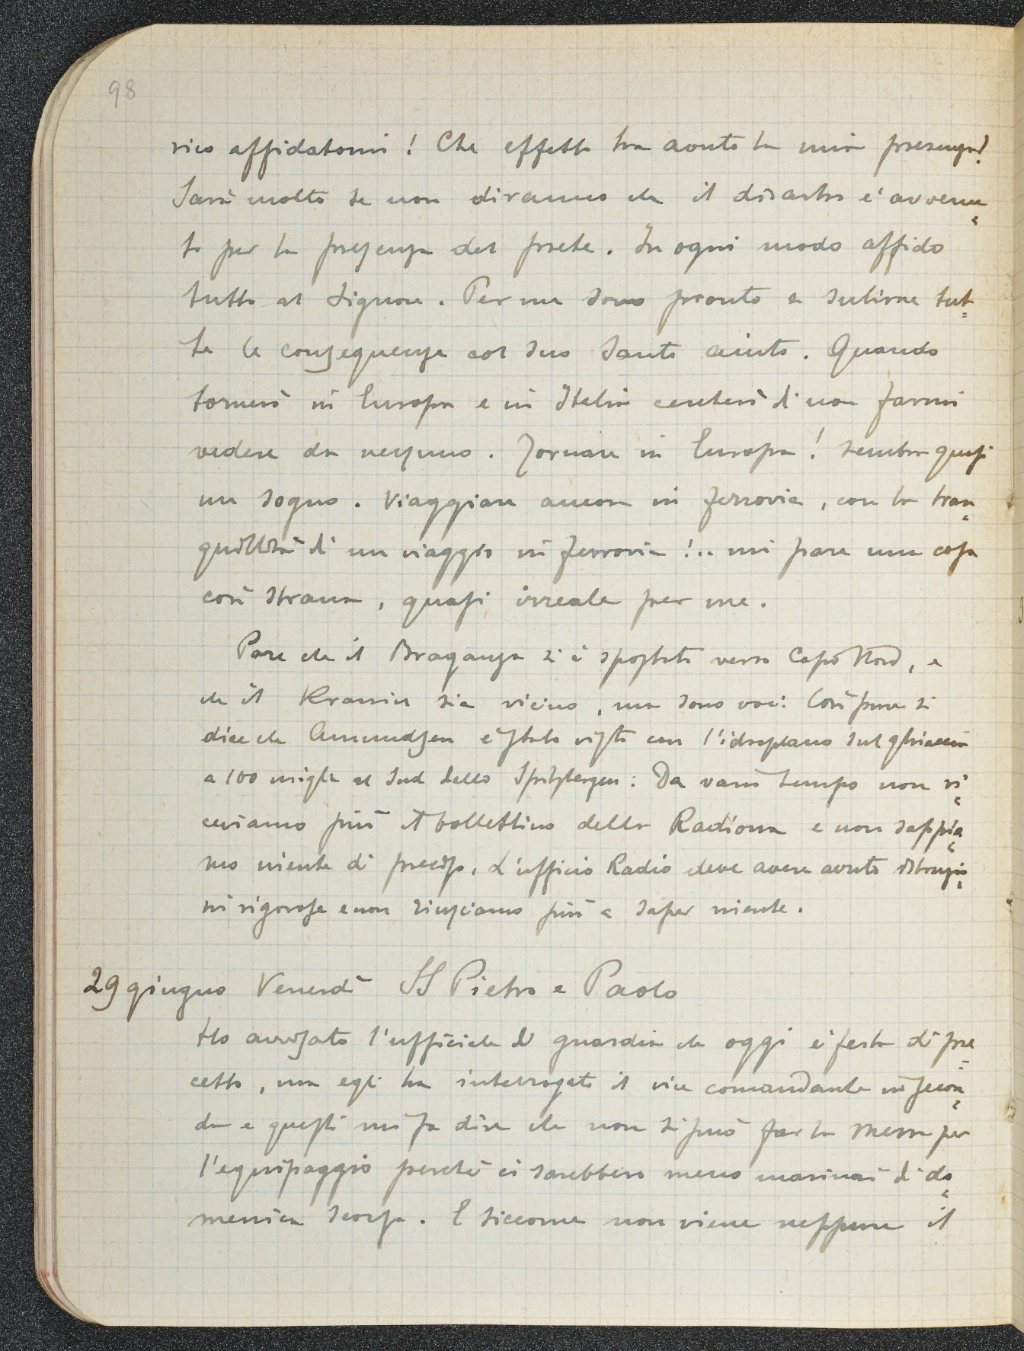 98
rico affidatomi! Che effetto ha avuto la mia presenza?
Sarà molto se non diranno che il disastro è avvenu=
to per la presenza del prete. In ogni modo affido
tutto al Signore. Per me sono pronto a subirne tut=
te le conseguenze col suo santo aiuto. Quando
tornerò in Europa e in Italia cercherò di non farmi
vedere da nessuno. Tornare in Europa! sembra quasi
un sogno. Viaggiare ancora in ferrovia, con la tran=
quillità di un viaggio in ferrovia!.. mi pare una cosa
così strana, quasi irreale per me.
Pare che il Braganza si è spostato verso Capo Nord, e
che il Krassin sia vicino, ma sono voci: Così pure si
dice che Amundsen è stato visto con l'idroplano sul ghiaccio
a 100 miglia al Sud dello Spitzbergen: Da vario tempo non ri=
ceviamo più il bollettino della Radioroma e non sappia=
mo niente di preciso, l'ufficio Radio deve avere avuto istruzio=
ni rigorose e non riusciamo più a saper niente.
29 giugno Venerdì SS Pietro e Paolo
Ho avvisato l'ufficiale di guardia che oggi è festa di pre=
cetto, ma egli ha interrogato il vice comandante in secon=
da e questi mi fa dire che non si può far la messa per
l'equipaggio perché ci sarebbero meno marinai di do=
menica scorsa. E siccome non viene neppure il